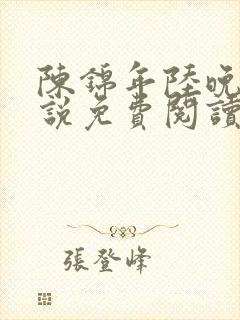 陳錦年陸晚
說免費閱讀
張登峰